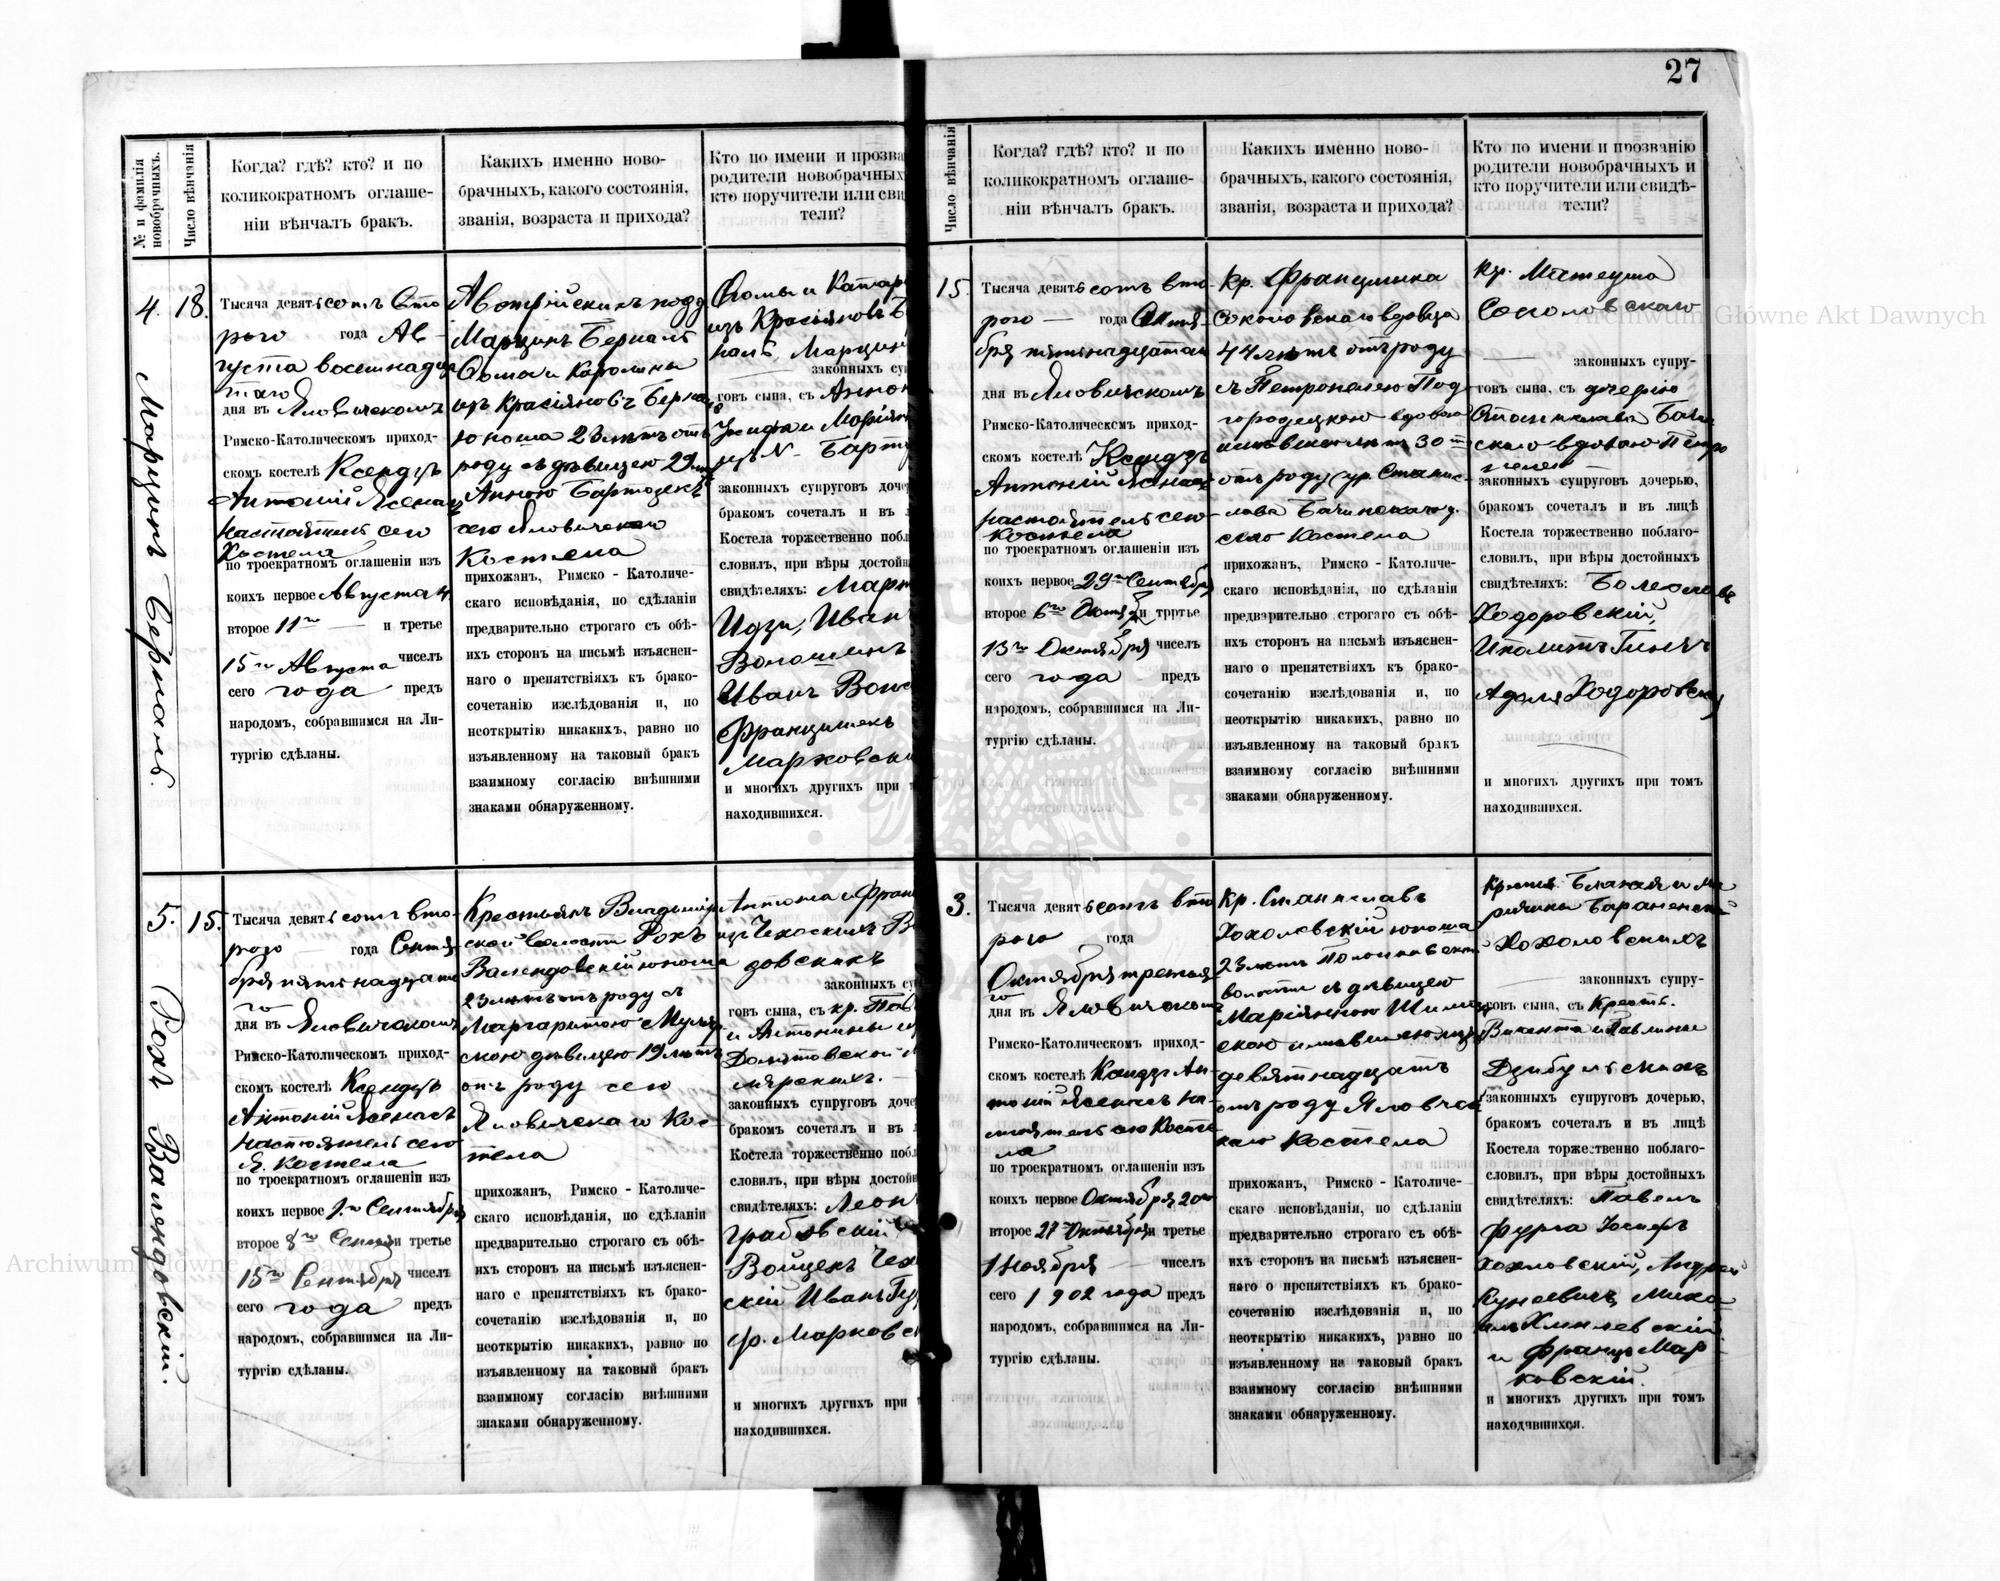 27
№ и фамилія новобрачныхъ.
Число вѣнчанія
Когда? гдѣ? кто? и по
коликократномъ оглаше-
ніи вѣнчалъ бракъ.
Какихъ именно ново-
брачныхъ, какого состоянія,
званія, возраста и прихода?
Кто по имени и прозва
родители новобрачныхъ
кто поручители или сви
тели?
4.
Марцинъ Берналь.
18.
Тысяча девятьсотъ вто
рого года Ав-
густа восемнадца
таго
дня въ Яловичскомъ
Римско-Католическомъ приход-
скомъ костелѣ Ксендзъ
Антоній Ясенас
настоятель сего
Костела
по троекратномъ оглашеніи изъ
коихъ первое Августа 4,
второе 11го и третье
15го Августа чиселъ
сего года предъ
народомъ, собравшимся на Ли-
тургію сдѣланы.
Австрійскихъ подд
Марцинъ Берналь
Фома и Каролины
изъ Красіяновъ Берна
юноша 23 лѣтъ отъ
роду съ дѣвицею 29
Анною Бартошекъ
сего Яловичскаго
Костела
прихожанъ, Римско - Католиче-
скаго исповѣданія, по сдѣланіи
предварительно строгаго съ обѣ-
ихъ сторонъ на письмѣ изъяснен-
наго о препятствіяхъ къ брако-
сочетанію изслѣдованія и, по
неоткрытію никакихъ, равно по
изъявленному на таковый бракъ
взаимному согласію внѣшними
знаками обнаруженному.
Фомы и Катар
изъ Красіяновъ Б
наль, Марцин
законныхъ су
говъ сына, съ Анною
Іосифа и Маріян
изъ N - Барт
законныхъ супруговъ доче
бракомъ сочеталъ и въ л
Костела торжественно побл
словилъ, при вѣры достойн
свидѣтеляхъ: Март
Идзи, Иван
Волошинъ
Иванъ Вон
Францишекъ
Марковски
и многихъ другихъ при т
находившихся.
5.
Рохъ Валендовскій.
15.
Тысяча девятьсотъ вто-
рого года Сентя
бря пятнадцата
го
дня въ Яловичскомъ
Римско-Католическомъ приход-
скомъ костелѣ Ксендзъ
Антоній Ясенасъ
настоятель сего
Я. костела
по троекратномъ оглашеніи изъ
коихъ первое 1го Сентября
второе 8го Сентя и третье
15го Сентября чиселъ
сего года предъ
народомъ, собравшимся на Ли-
тургію сдѣланы.
Крестьянъ Владимір
ской волости Рохъ
Валендовскій юноша
23 лѣтъ отъ роду съ
Маргаритою Муляр
скою дѣвицею 19 лѣтъ
отъ роду сего
Яловичскаго Кос-
тела
прихожанъ, Римско - Католиче-
скаго исповѣданія, по сдѣланіи
предварительно строгаго съ обѣ-
ихъ сторонъ на письмѣ изъяснен-
наго о препятствіяхъ къ брако-
сочетанію изслѣдованія и, по
неоткрытію никакихъ, равно по
изъявленному на таковый бракъ
взаимному согласію внѣшними
знаками обнаруженному.
Антона и Фран
изъ Чехоскихъ В
довскихъ
законныхъ су
говъ сына, съ кр. Пав
и Антонины
лярскихъ.
законныхъ супруговъ доче
бракомъ сочеталъ и въ л
Костела торжественно побл
словилъ, при вѣры достойн
свидѣтеляхъ: Леон
Грабовскій
Войцехъ Чех
скій Иванъ
Фр. Марковс
и многихъ другихъ при
находившихся.
Число вѣнчанія
Когда? гдѣ? кто? и по
коликократномъ оглаше-
ніи вѣнчалъ бракъ.
Какихъ именно ново-
брачныхъ, какого состоянія,
званія, возраста и прихода?
Кто по имени и прозванію
родители новобрачныхъ и
кто поручители или свидѣ-
тели?
15.
Тысяча девятьсотъ вто-
рого года Октя
бря пятнадцатаго
дня въ Яловичскомъ
Римско-Католическомъ приход-
скомъ костелѣ Ксендзъ
Антоній Ясенасъ
настоятель сего
Костела
по троекратномъ оглашеніи изъ
коихъ первое 29го Сентября
второе 6го Октяб и третье
13го Октября чиселъ
сего года предъ
народомъ, собравшимся на Ли-
тургію сдѣланы.
Кр. Францишка
Соколовскаго вдовца
44 лѣтъ отъ роду
съ Петронелею Под
городецкою вдовою
имѣвшею лѣтъ 30
отъ роду кр. Станис-
лава Бачинскаго
сего Костела
прихожанъ, Римско - Католиче-
скаго исповѣданія, по сдѣланіи
предварительно строгаго съ обѣ-
ихъ сторонъ на письмѣ изъяснен-
наго о препятствіяхъ къ брако-
сочетанію изслѣдованія и, по
неоткрытію никакихъ, равно по
изъявленному на таковый бракъ
взаимному согласію внѣшними
знаками обнаруженному.
Кр. Матеуша
Соколовскаго
законныхъ супру-
говъ сына, съ дочерію
Станислава Бачин
скаго вдовою Петро
нелею
законныхъ супруговъ дочерью,
бракомъ сочеталъ и въ лицѣ
Костела торжественно благо-
словилъ, при вѣры достойныхъ
свидѣтеляхъ: Болеславъ
Ходоровскій,
Иполитъ
Адоля Ходоровскій
и многихъ другихъ при томъ
находившихся.
3.
Тысяча девятьсотъ вто
рого года
Октября третья
го
дня въ Яловичскомъ
Римско-Католическомъ приход-
скомъ костелѣ Ксендзъ Ан-
тоній Ясенасъ на-
стоятель сего Косте-
ла
по троекратномъ оглашеніи изъ
коихъ первое Октября 20го
второе 27 Октября и третье
1 Ноября чиселъ
сего 1902 года предъ
народомъ, собравшимся на Ли-
тургію сдѣланы.
Кр. Станиславъ
Хохоловскій юноша
23 лѣтъ
волости съ дѣвицею
Маріянною
скою имѣвшею
девятнадцать
отъ роду Яловичс
каго Костела
прихожанъ, Римско - Католиче-
скаго исповѣданія, по сдѣланіи
предварительно строгаго съ обѣ-
ихъ сторонъ на письмѣ изъяснен-
наго о препятствіяхъ къ брако-
сочетанію изслѣдованія и, по
неоткрытію никакихъ, равно по
изъявленному на таковый бракъ
взаимному согласію внѣшними
знаками обнаруженному.
Хохоловскихъ
законныхъ супру-
говъ сына, съ Крестья.
Викента и Павлины
Дзибульскихъ
законныхъ супруговъ дочерью,
бракомъ сочеталъ и въ лицѣ
Костела торжественно поблаго-
словилъ, при вѣры достойныхъ
свидѣтеляхъ: Павелъ
Фурга Іосифъ
Хохловскій, Андрей
Куневичъ, Миха
илъ Хмилевскій
и Францъ Мар
ковскій.
и многихъ другихъ при томъ
находившихся.
Archiwum Główne Akt Dawnych
Archiwum Główne Akt Dawnych